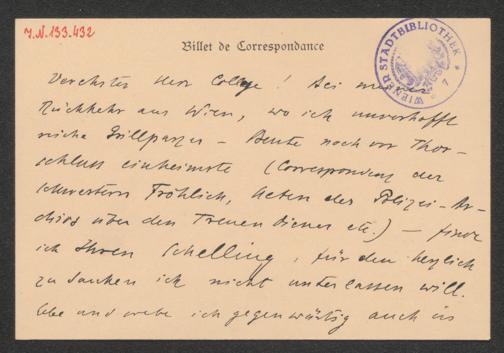 J.N.133.432
Billet de Correspondance
WIENER STADTBIBLIOTHEK
Verehrter Herr College! Bei meiner
Rückkehr aus Wien, wo ich unverhofft
reiche Grillparzer-Beute noch vor Thor-
schluss einheimste (Correspondenz der
Schwestern Fröhlich, Acten des Polizei-Ar-
chivs über den Treuen Diener etc.) – finde
ich Ihren Schelling, für den herzlich
zu danken ich nicht unterlassen will.
Lebe und webe ich gegenwärtig auch in